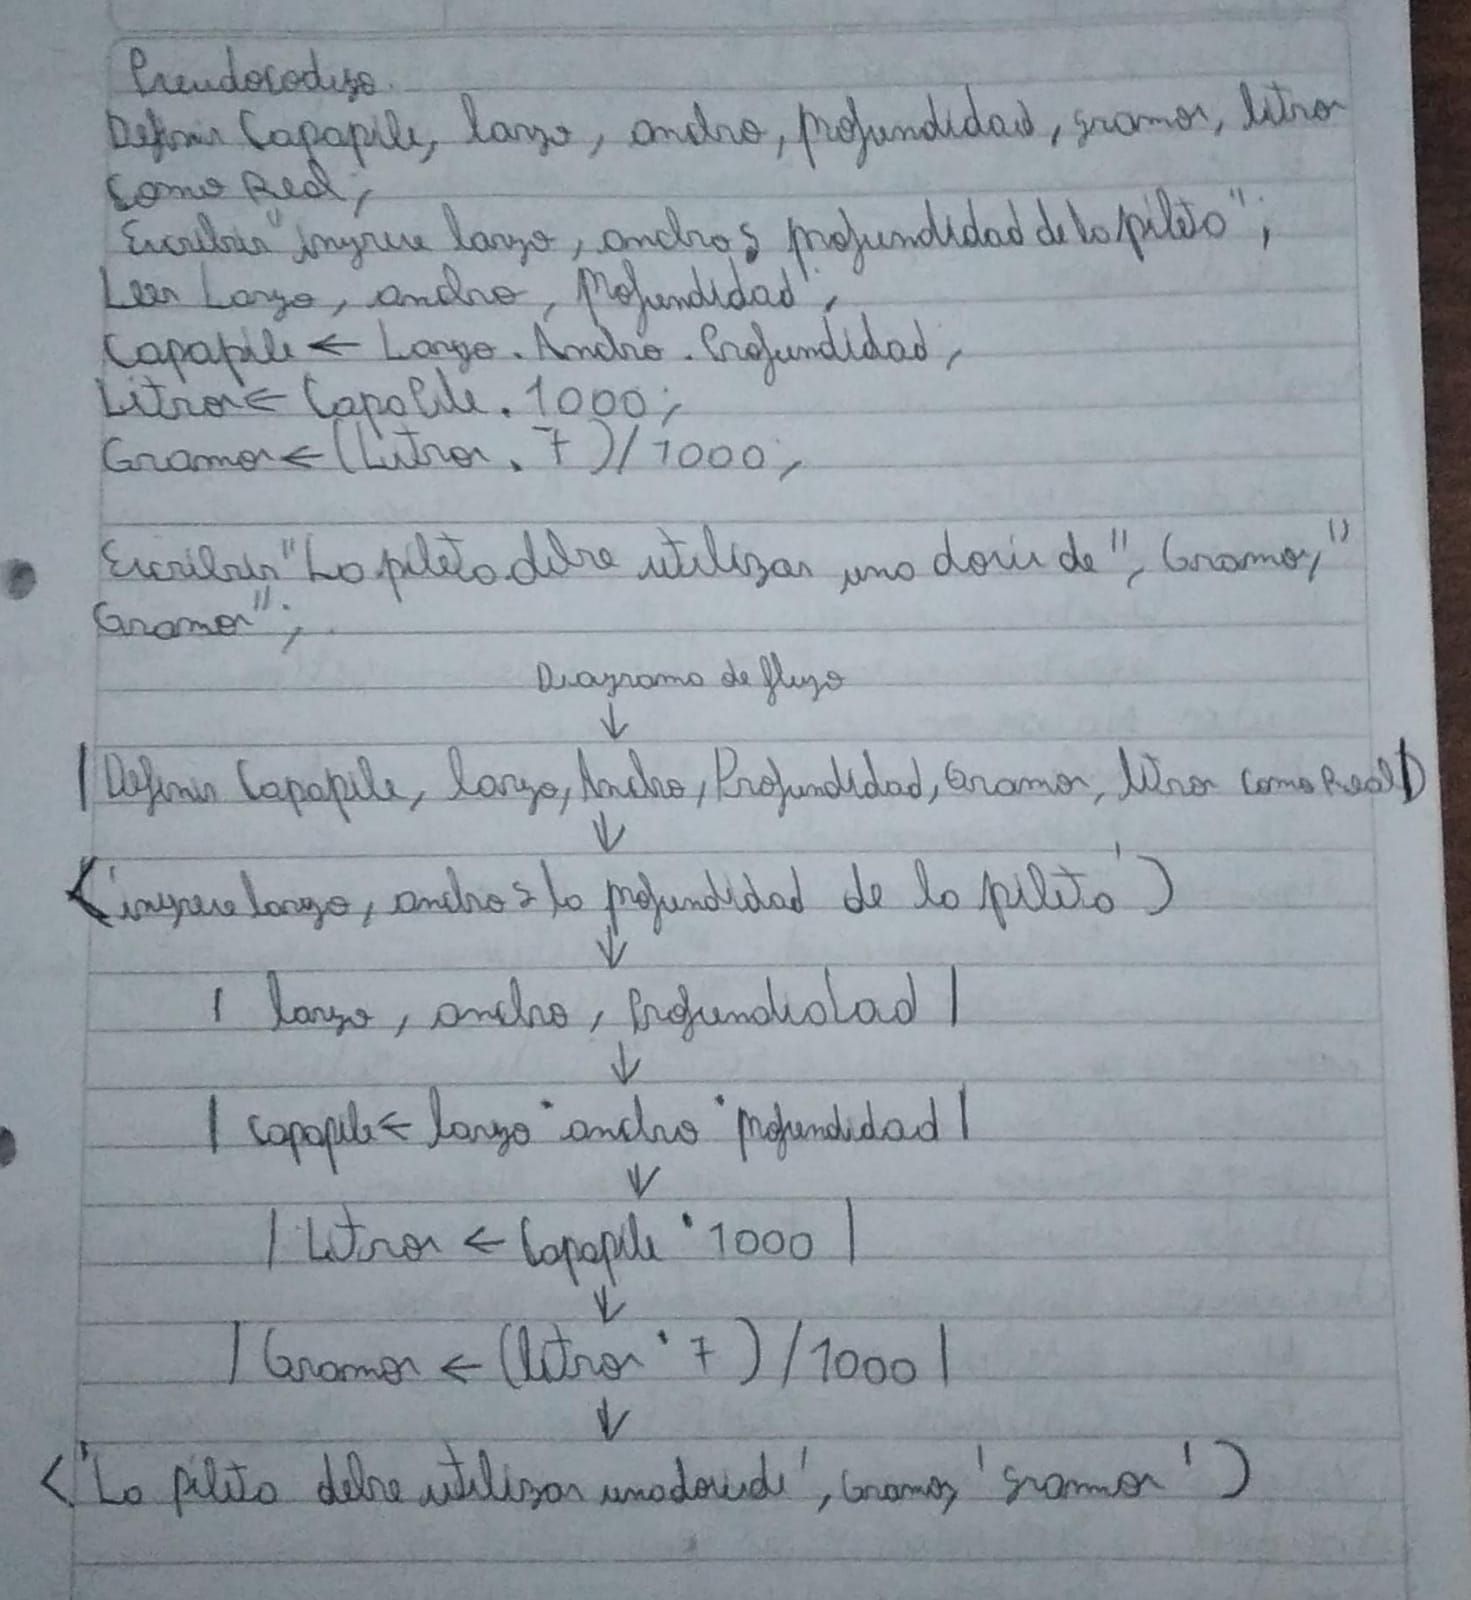 Pseudocodigo.
Definir Capapile, largo, ancho, profundidad, gramos, litros
Como Real;
Escribir "ingrese largo, ancho y profundidad de la pileta";
Leer Largo, ancho, Profundidad;
Capapile ← Largo . Ancho . Profundidad;
Litros ← Capapile . 1000;
Gramos ← (Litros . 7)/1000;
Escribir "La pileta debe utilizar una dosis de", Gramos, "
Gramos";
Diagrama de flujo
↓
| Definir Capapile, largo, Ancho, Profundidad, Gramos, litros Como Real |
↓
<'ingrese largo, ancho y la profundidad de la pileta')
↓
| largo, ancho, Profundidad |
↓
| capapile ← largo * ancho * profundidad |
↓
| Litros ← Capapile * 1000 |
↓
| Gramos ← (litros * 7)/1000 |
↓
<'La pileta debe utilizar una dosis de', Gramos, 'gramos')